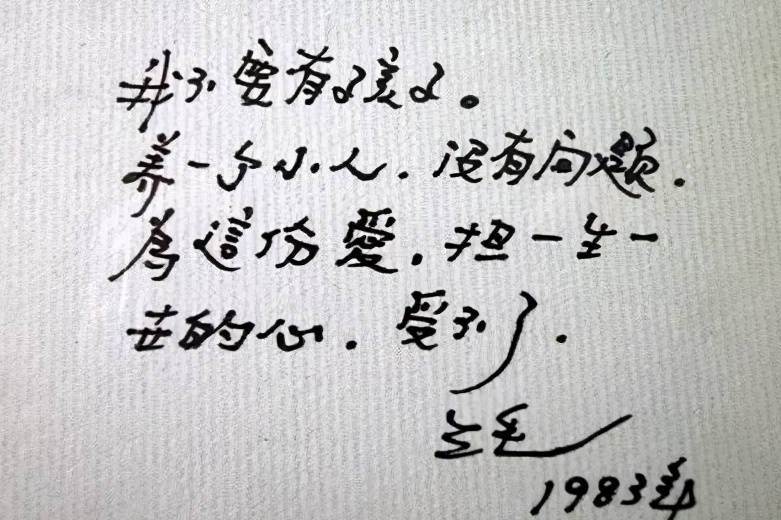 我不要有孩子。
养一个小人．没有问题．
為這份愛．担一生一
世的心．受不了．
三毛
1983年